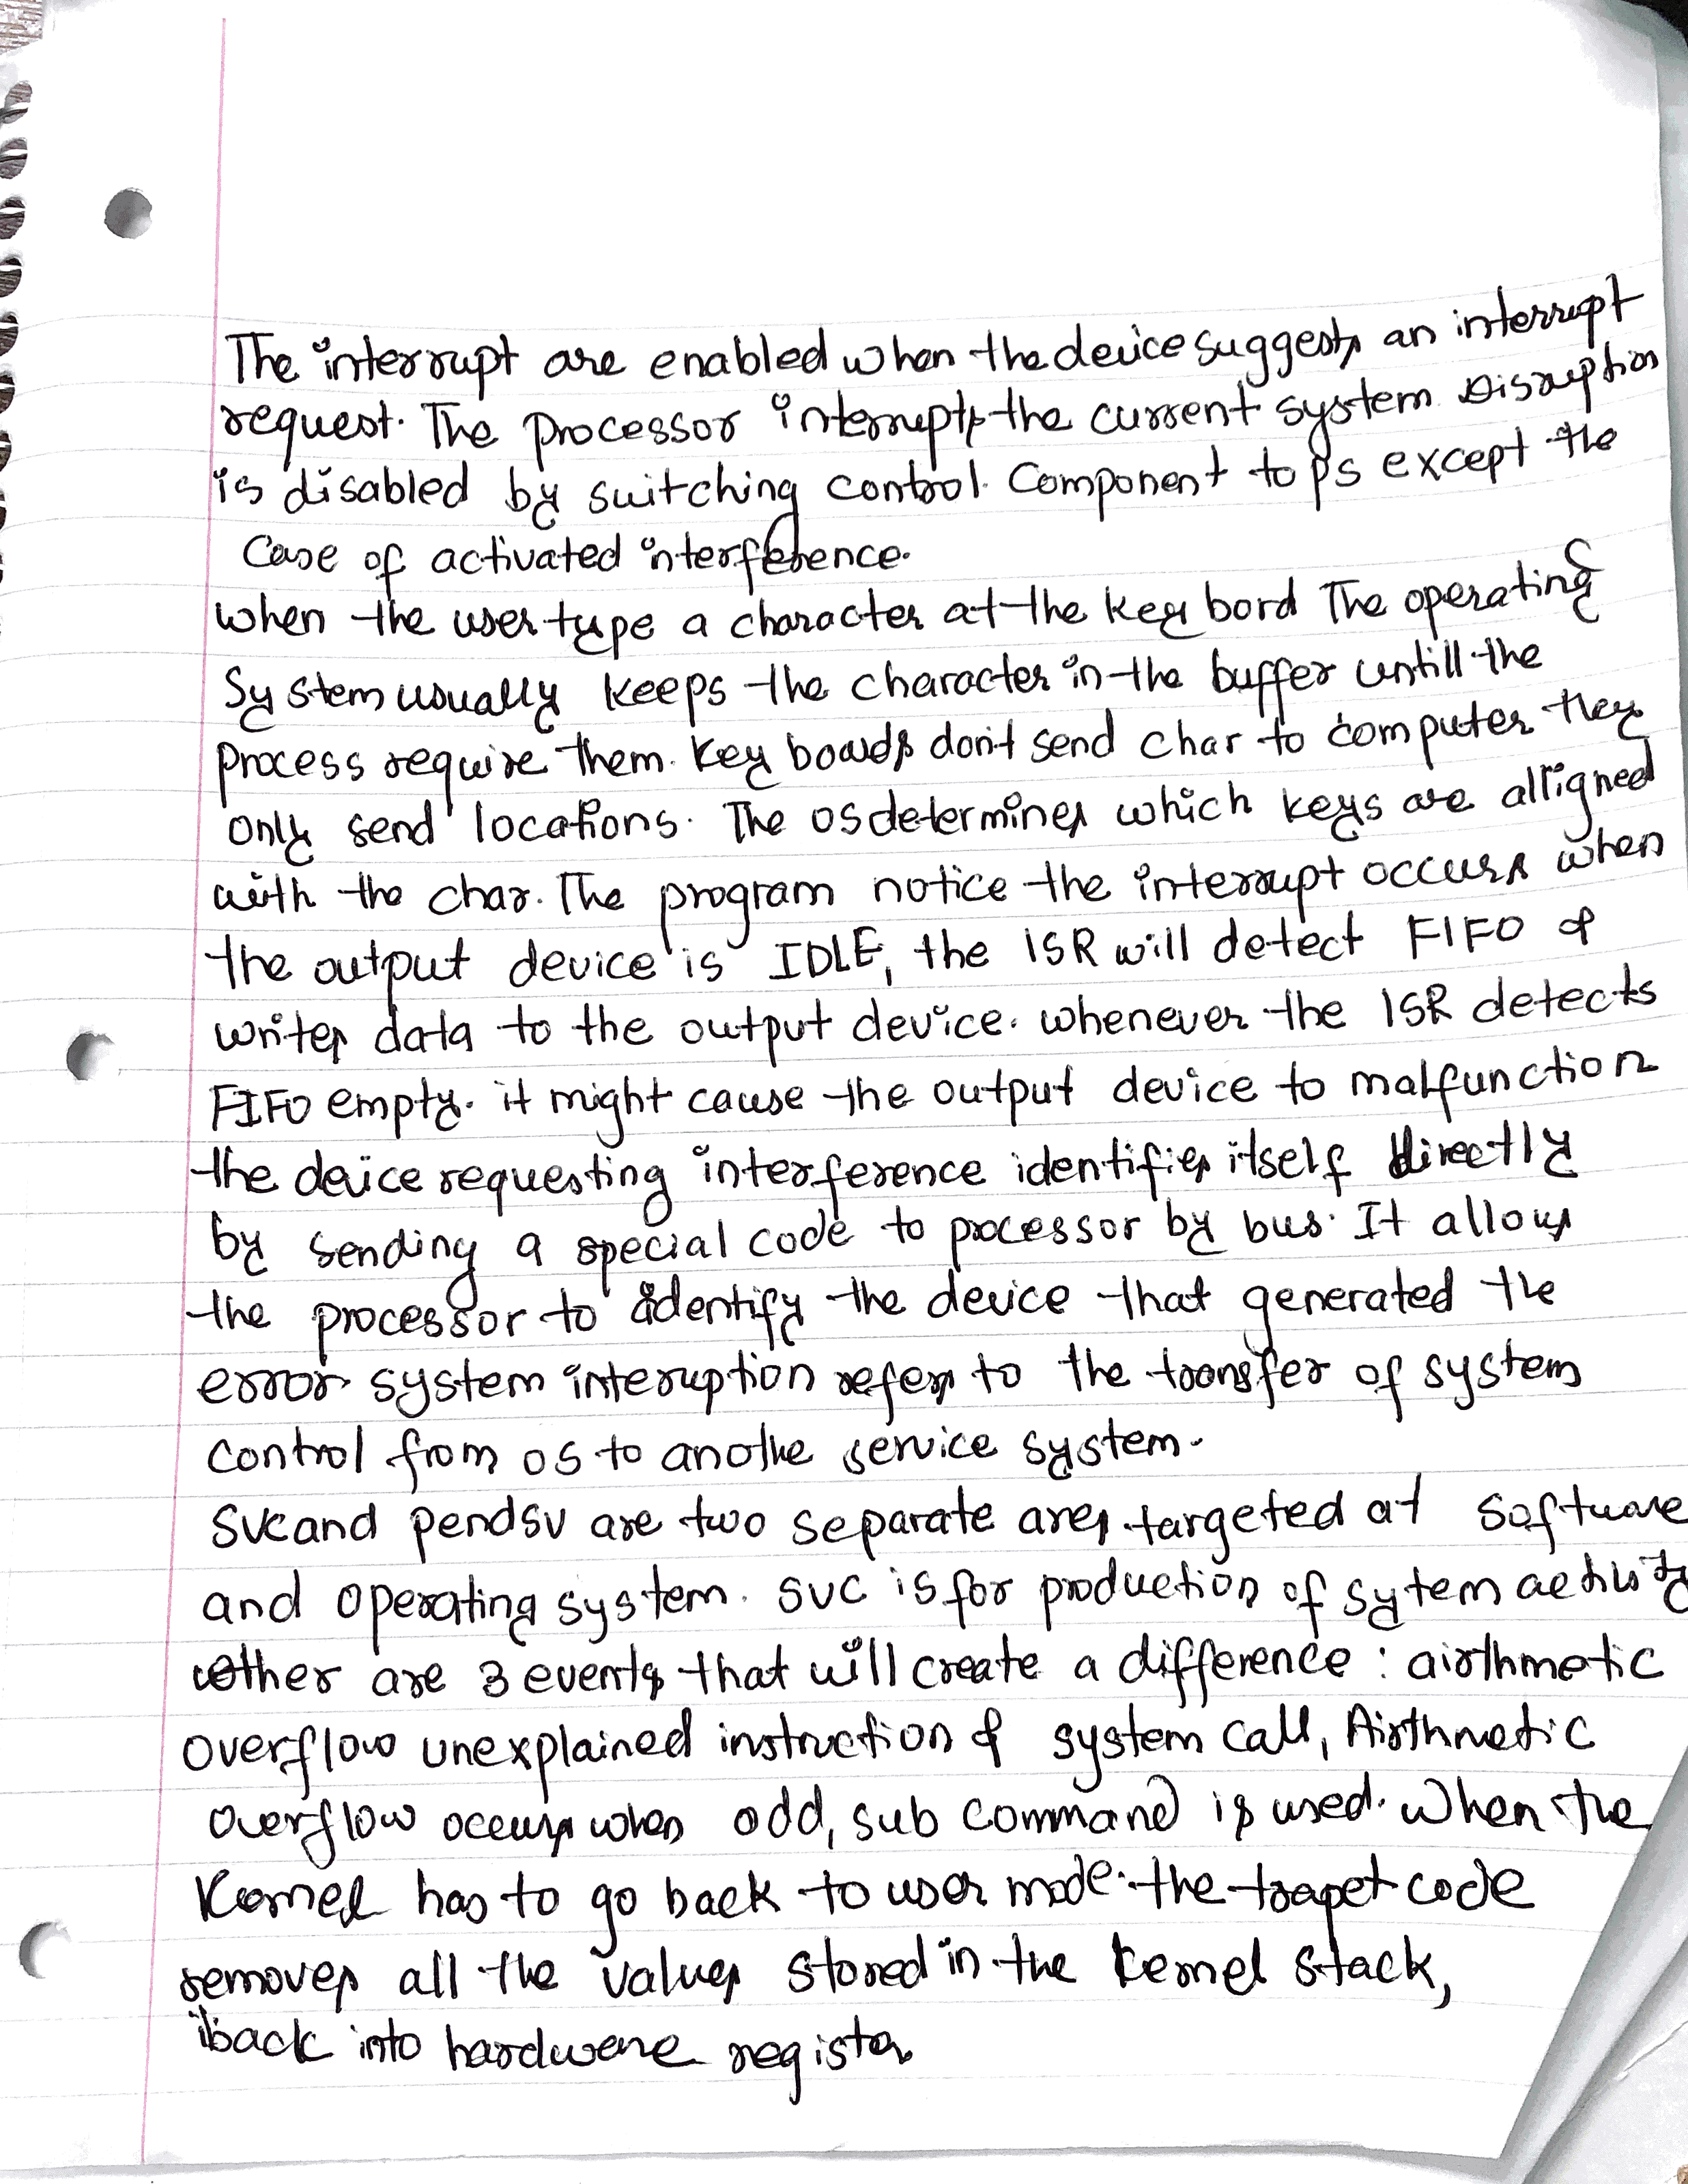 The interrupt are enabled when the device suggests an interrupt
request. The processor interrupts the current system Disruption
is disabled by switching control. Component to ps except the
Case of activated interference.
when the user type a character at the key bord The operating
System usually keeps the character in the buffer untill the
process require them. Key boards don't send char to computer they
only send locations. The os determines which keys are alligned
with the char. The program notice the interrupt occurs when
the output device is IDLE, the ISR will detect FIFO &
writes data to the output device. whenever the ISR detects
FIFO empty. it might cause the output device to malfunction
the device requesting interference identifies itself directly
by sending a special code to processor by bus. It allows
the processor to identify the device that generated the
error. system interuption refers to the transfer of system
control from os to anothe service system.
SVC and pendsv are two separate areas targeted at software
and operating system. SVC is for production of sytem activity
other are 3 events that will create a difference : airthmetic
overflow unexplained instruction & system call, Airthmetic
overflow occurs when odd, sub command is used. When the
Kernel has to go back to user mode. the trapet code
removes all the values stored in the kernel stack,
back into hardware register